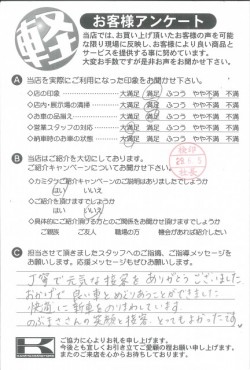 軽
お客様アンケート
当店では、お買い上げ頂いたお客様の声を可能
な限り現場に反映し、お客様により良い商品と
サービスを提供する事に努めています。
大変お手数ですが是非お声をお聞かせ下さい。
A 当店を実際にご利用になった印象をお聞かせ下さい。
◇店の印象 大満足 満足 ふつう やや不満 不満
◇店内・展示場の清掃 大満足 満足 ふつう やや不満 不満
◇お車の品揃え 大満足 満足 ふつう やや不満 不満
◇営業スタッフの対応 大満足 満足 ふつう やや不満 不満
◇納車時のお車の状態 大満足 満足 ふつう やや不満 不満
B 当店はご紹介を大切にしております。
ご紹介キャンペーンについてお聞かせ下さい。
◇カミタウンご紹介キャンペーンのご説明はありましたでしょうか
はい いいえ
◇ご紹介を頂けますでしょうか
はい いいえ
◇具体的にご紹介頂ける方とのご関係をお聞かせ頂けますでしょうか
ご親族 ご友人 職場の方 機会があれば紹介したい
C 担当させて頂きましたスタッフへのご指摘、ご指導メッセージを
お願いします。応援メッセージもぜひお願いします。
丁寧で元気な接客をありがとうございました
おかげで良い車とめぐりあうことができました
快適に新車をのりまわしています
のぶまささんの笑顔と接客、とってもよかったです。
K
ご協力に心よりお礼を申し上げます。
今後とも宜しくお引立てご愛顧の程お願い申し上げます。
またのご来店を心からお待ちしております。